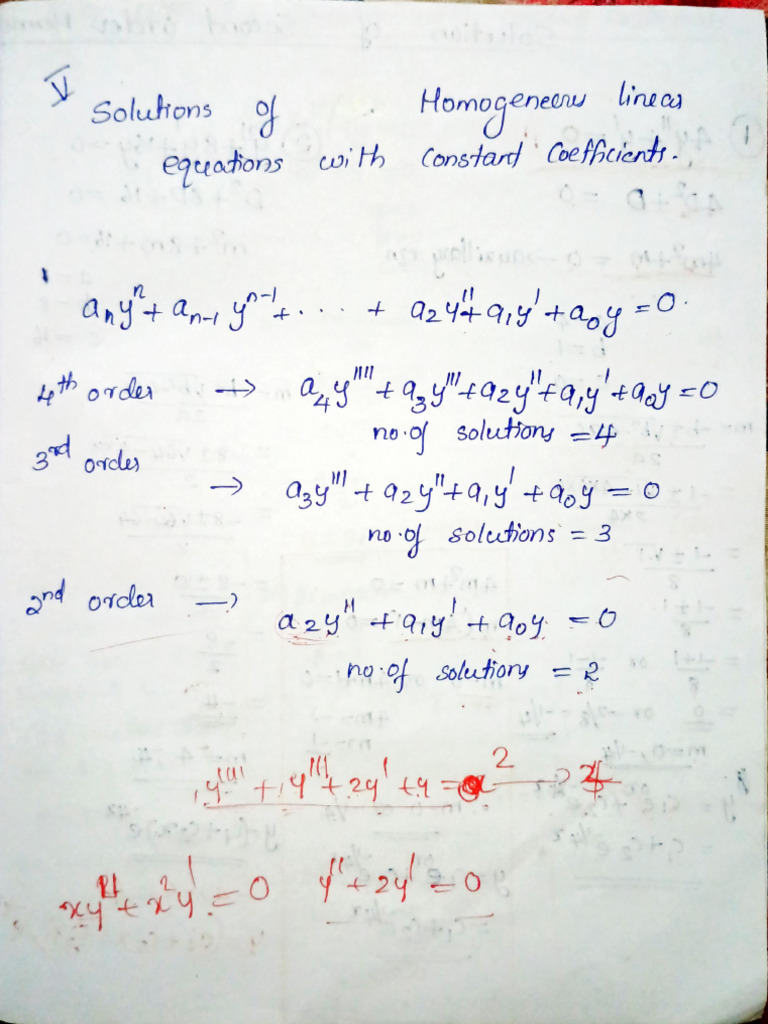 V Solutions of Homogeneous linear
equations with Constant Coefficients.
aₙyⁿ + aₙ₋₁ yⁿ⁻¹ + . . . + a₂y'' + a₁y' + a₀y = 0.
4th order → a₄y'''' + a₃y''' + a₂y'' + a₁y' + a₀y = 0
no. of solutions = 4
3rd order
→ a₃y''' + a₂y'' + a₁y' + a₀y = 0
no. of solutions = 3
2nd order → a₂y'' + a₁y' + a₀y = 0
no. of solutions = 2
y'''' + 1y''' + 2y' + y =
xy'' + x²y' = 0 y'' + 2y' = 0